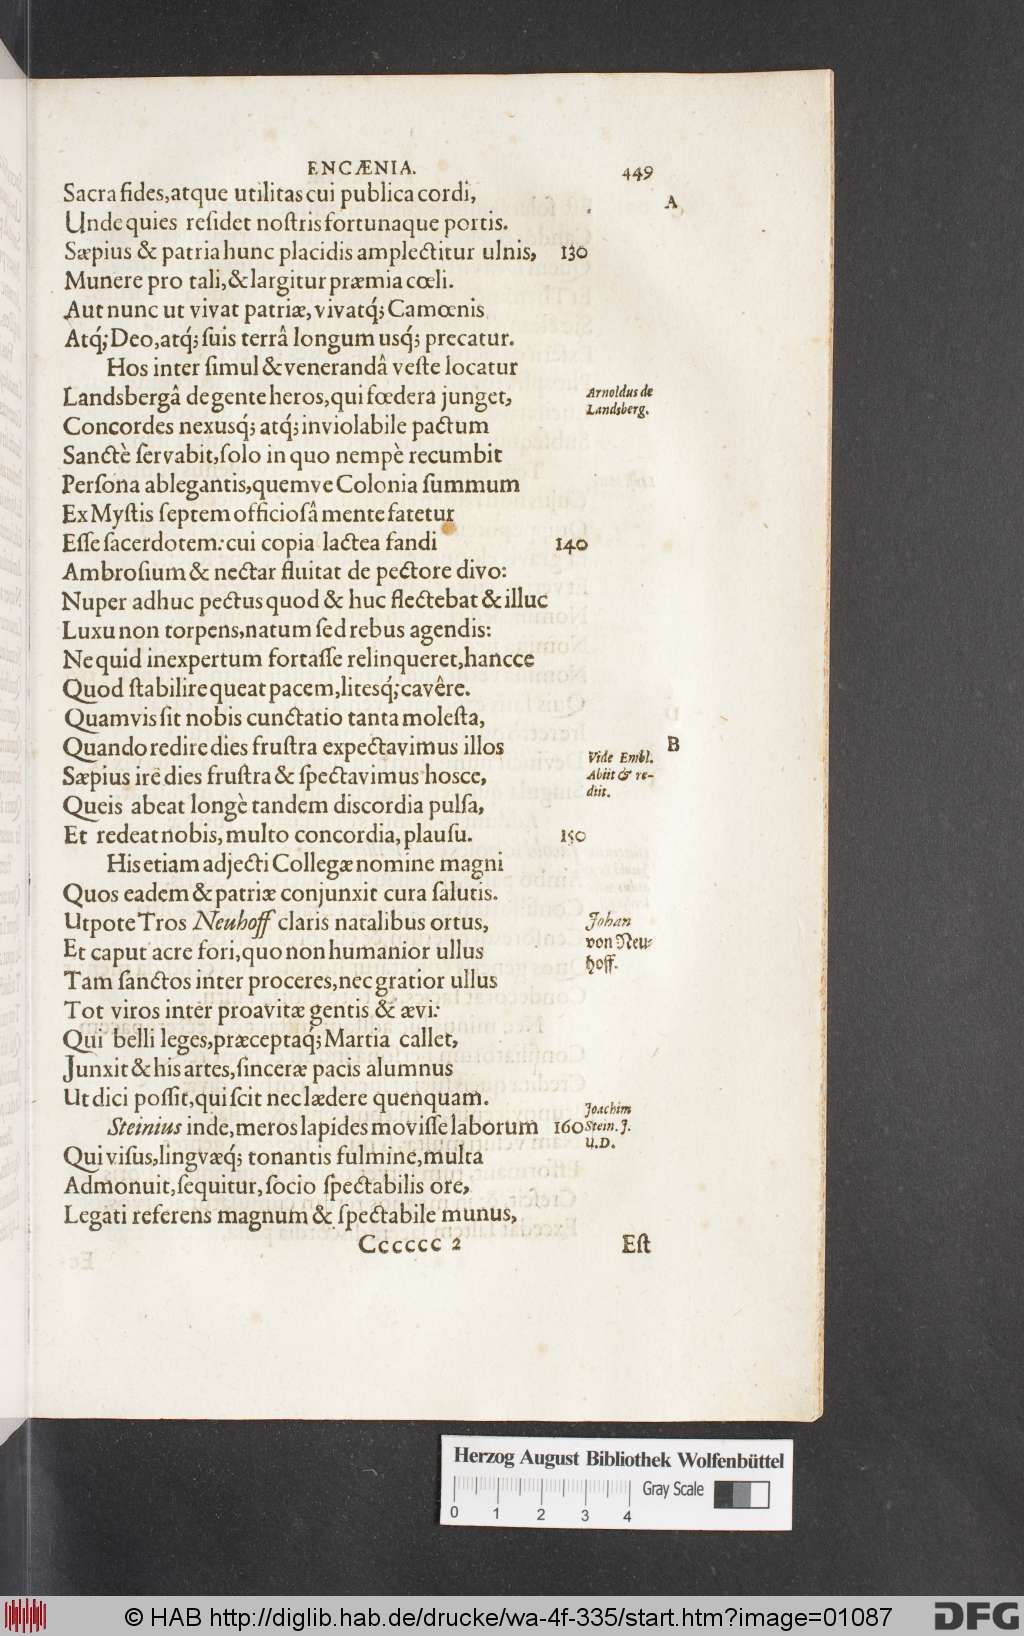 ENCÆNIA. 449
Sacra fides,atque utilitas cui publica cordi, A
Unde quies reſidet noſtris fortunaque portis.
Sæpius & patria hunc placidis amplectitur ulnis, 130
Munere pro tali,& largitur præmia cœli.
Aut nunc ut vivat patriæ, vivatq́; Camœnis
Atq́; Deo,atq́; ſuis terrâ longum usq́; precatur.
Hos inter ſimul & venerandâ veſte locatur
Landsbergâ de gente heros,qui fœdera junget, Arnoldus de
Landsberg.
Concordes nexusq́; atq́; inviolabile pactum
Sanctè ſervabit,ſolo in quo nempè recumbit
Perſona ablegantis,quemve Colonia ſummum
Ex Myſtis ſeptem officioſâ mente fatetur
Eſſe ſacerdotem: cui copia lactea fandi 140
Ambroſium & nectar fluitat de pectore divo:
Nuper adhuc pectus quod & huc flectebat & illuc
Luxu non torpens,natum ſed rebus agendis:
Ne quid inexpertum fortaſſe relinqueret,hancce
Quod ſtabilire queat pacem,litesq́; cavêre.
Quamvis ſit nobis cunctatio tanta moleſta,
Quando redire dies fruſtra expectavimus illos B
Vide Embl.
Sæpius ire dies fruſtra & ſpectavimus hosce, Abiit & re-
diit.
Queis abeat longè tandem discordia pulſa,
Et redeat nobis, multo concordia, plauſu. 150
His etiam adjecti Collegæ nomine magni
Quos eadem & patriæ conjunxit cura ſalutis.
Utpote Tros Neuhoff claris natalibus ortus, Johan
Et caput acre fori,quo non humanior ullus von Neu-
Tam ſanctos inter proceres,nec gratior ullus hoff.
Tot viros inter proavitæ gentis & ævi:
Qui belli leges,præceptaq́; Martia callet,
Junxit & his artes,ſinceræ pacis alumnus
Ut dici poſſit,qui ſcit nec lædere quenquam.
Joachim
Steinius inde,meros lapides moviſſe laborum 160 Stein. J.
U.D.
Qui viſus,lingvæq́; tonantis fulmine,multa
Admonuit,ſequitur, ſocio ſpectabilis ore,
Legati referens magnum & ſpectabile munus,
Cccccc 2 Eſt
Herzog August Bibliothek Wolfenbüttel
Gray Scale
0 1 2 3 4
© HAB http://diglib.hab.de/drucke/wa-4f-335/start.htm?image=01087
DFG